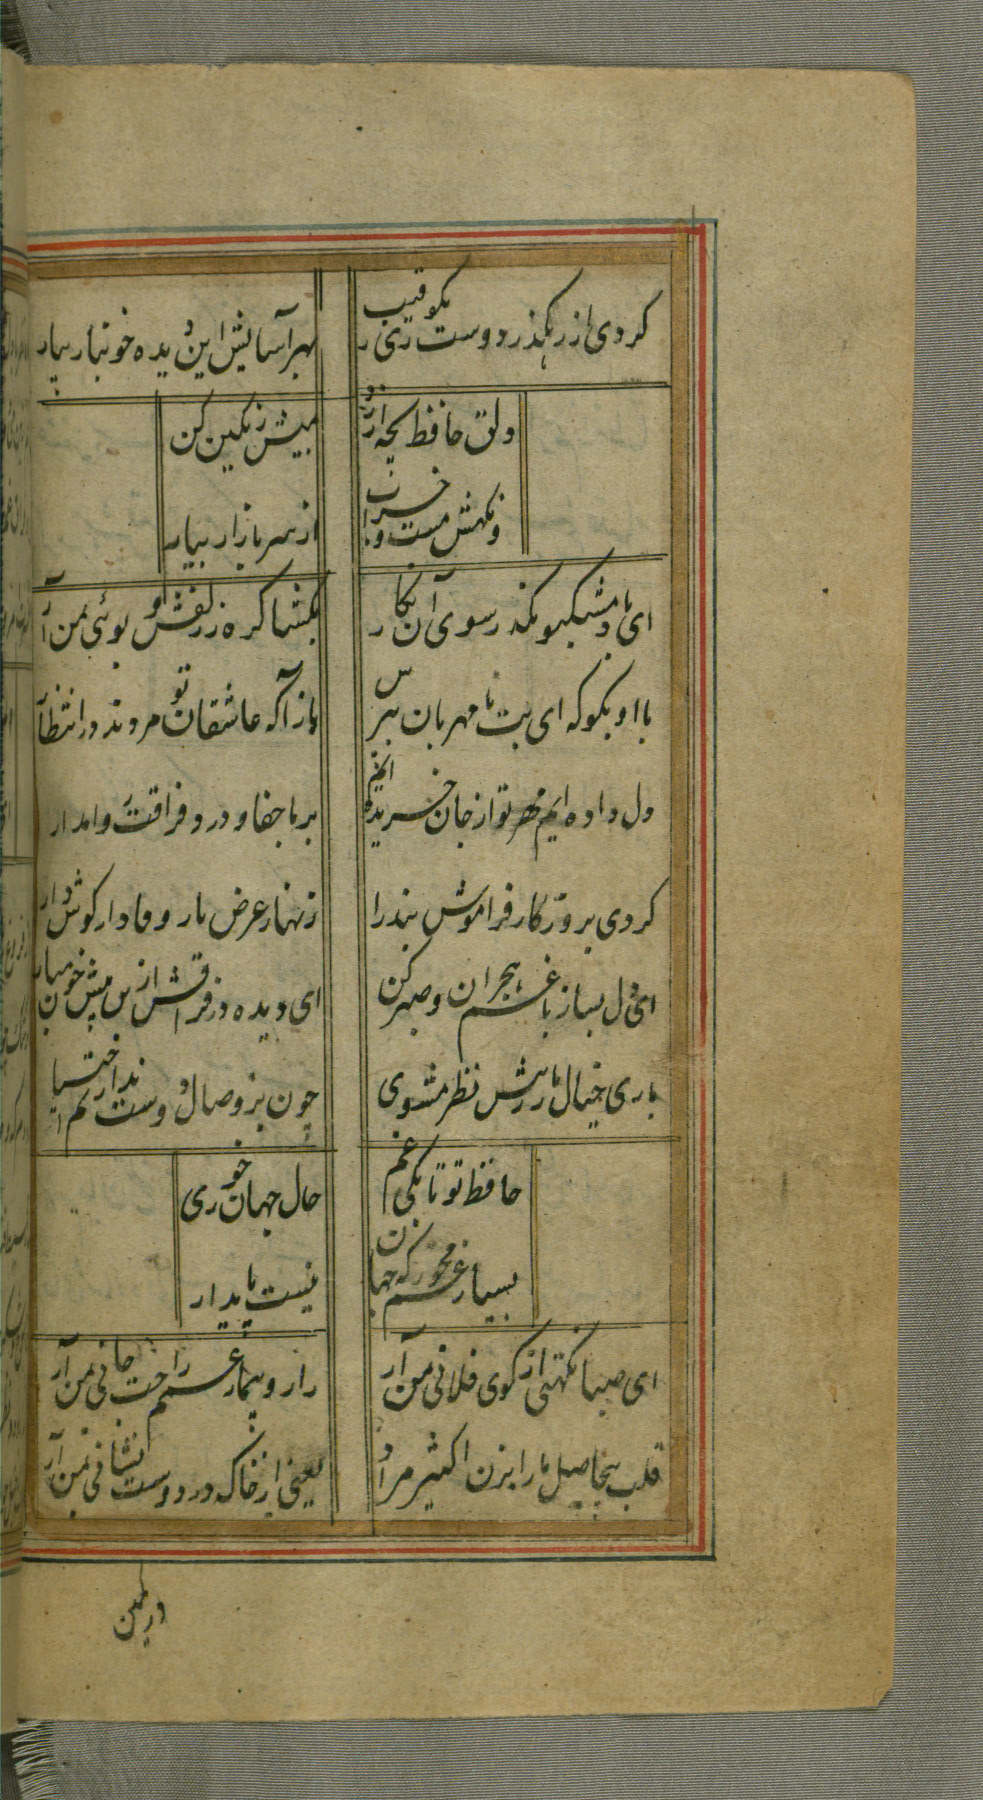 گردی از رهگذر دوست بکوری رقیب
بهر آسایش این دیده خونبار بیار
دلق حافظ بچه ارزد بمیش رنگین کن
وانگهش مست و خراب از سر بازار بیار
ای باد مشکبو بگذر سوی آن نگار
بگشا گره ز زلفش و بوئی بمن آر
با او بگو که ای بت نامهربان من
باز آ که عاشقان تو مردند در انتظار
دل داده ایم مهر تو از جان خریده ایم
بر ما جفا و درد فراقت روا مدار
کردی بروزگار فراموش بنده را
زنهار عرض یار وفادار گوش دار
ای دل بساز با غم هجران و صبر کن
ای دیده در فراقش از این بیش خون مبار
باری خیال یار ز پیش نظر مشوی
چون بر وصال دوست نداریم اختیار
حافظ تو تا بکی غم حال جهان خوری
بسیار غم مخور که جهان نیست پایدار
ای صبا نکهتی از کوی فلانی بمن آر
زار و بیمار غمم راحت جانی بمن آر
قلب بیحاصل ما را بزن اکسیر مراد
یعنی از خاک در دوست نشانی بمن آر
در کمین